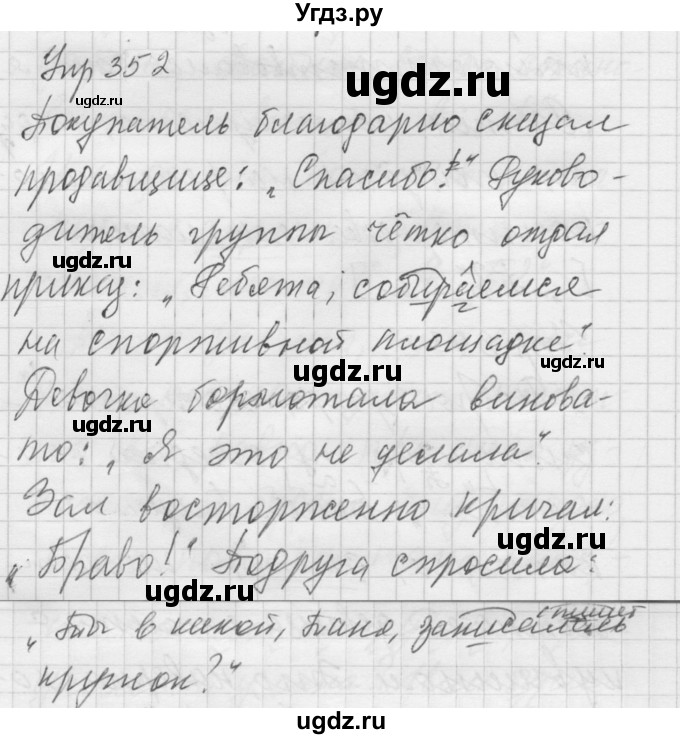 Угдз.ру
Упр 352
ugdz.ru
Покупатель благодарно сказал
ugdz.ru
продавщице: „Спасибо!“ Руково-
дитель группы чётко отдал
ugdz.ru
приказ: „Ребята, собираемся
ugdz.ru
на спортивной площадке“.
ugdz.ru
ugdz.ru
Девочка бормотала винова-
ugdz.ru
то: „Я это не делала“.
Зал восторженно кричал:
ugdz.ru
„Браво!“ Подруга спросила:
ugdz.ru
пишет
„Ты в какой, Таня, записалась
кружок?“
ugdz.ru
ugdz.ru